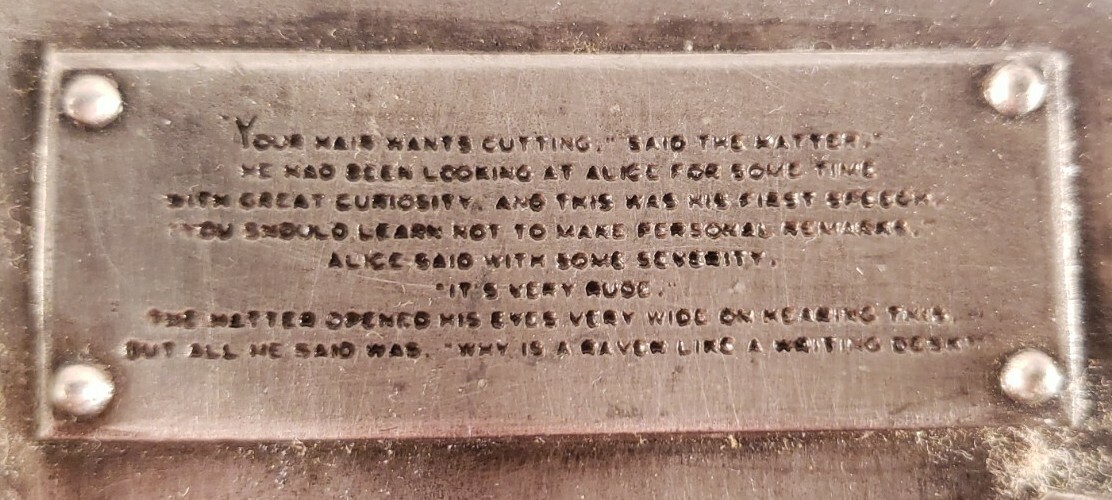 "YOUR HAIR WANTS CUTTING," SAID THE HATTER."
HE HAD BEEN LOOKING AT ALICE FOR SOME TIME
WITH GREAT CURIOSITY, AND THIS WAS HIS FIRST SPEECH.
"YOU SHOULD LEARN NOT TO MAKE PERSONAL REMARKS,"
ALICE SAID WITH SOME SEVERITY,
"IT'S VERY RUDE."
THE HATTER OPENED HIS EYES VERY WIDE ON HEARING THIS,
BUT ALL HE SAID WAS, "WHY IS A RAVEN LIKE A WRITING DESK?"